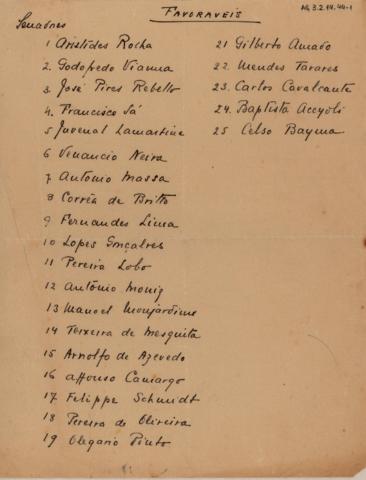 AG 3.2.14.44-1
FAVORAVEIS
Senadores
1 Aristides Rocha
2. Godofredo Vianna
3 José Pires Rebello
4. Francisco Sá
5 Juvenal Lamartine
6 Venancio Neiva
7 Antonio Massa
8 Corrêa de Britto
9 Fernandes Lima
10 Lopes Gonçalves
11 Pereira Lobo
12 Antônio Moniz
13 Manoel Monjardim
14 Teixeira de Mesquita
15 Arnolfo de Azevedo
16 Affonso Camargo
17 Felippe Schmidt
18 Pereira de Oliveira
19 Olegario Pinto
21 Gilberto Amado
22 Mendes Tavares
23. Carlos Cavalcante
24. Baptista Accyoli
25 Celso Bayma